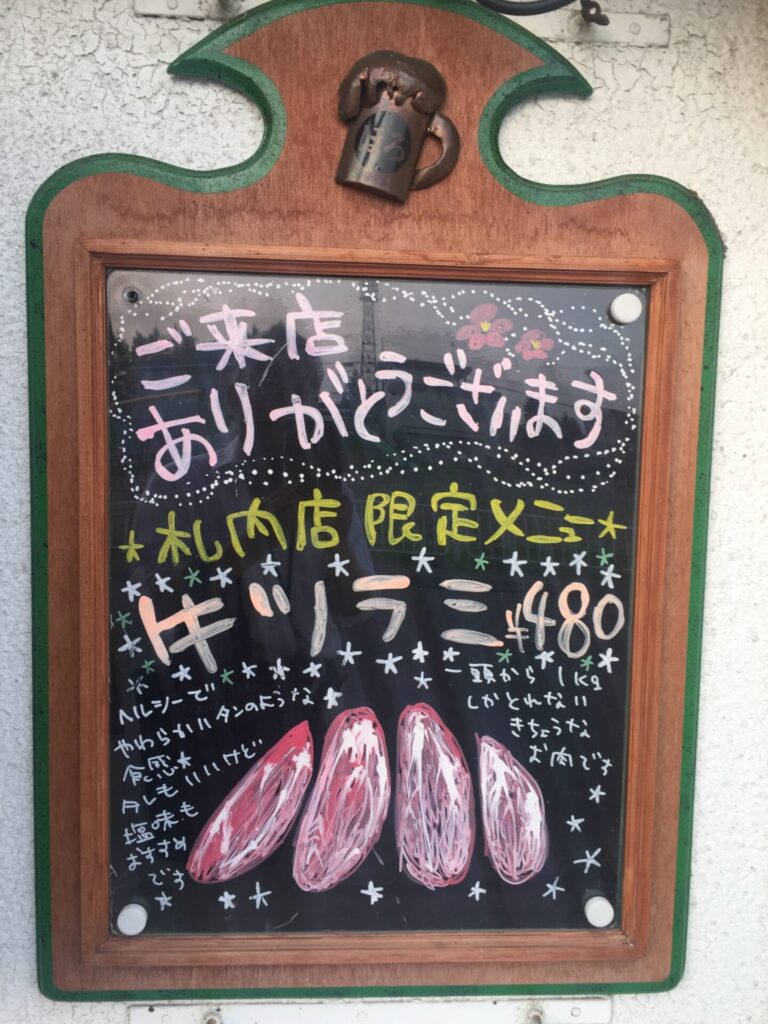 ご来店
ありがとうございます
★札内店限定メニュー★
牛ツラミ ¥480
ヘルシーで
やわらかいタンのような
食感★
タレもいいけど
塩味も
おすすめ
です
一頭から1kg
しかとれない
きちょうな
お肉です